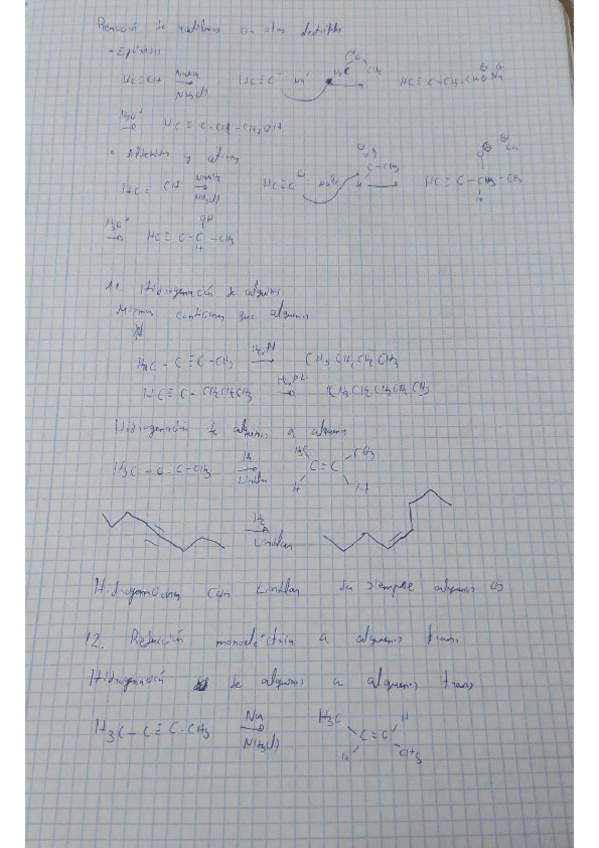 Reacción de con otros
• Epóxidos
HC≡CH NaNH₂ NH₃(l) HC≡C⁻ Na⁺ HC≡C-CH₂-CH₂O Na
H₃O⁺ HC≡C-CH₂-CH₂OH
• y
HC≡CH NaNH₂ NH₃(l) HC≡C C-CH₃ HC≡C-CH-CH₃
H₃O⁺ HC≡C-C-CH₃
OH
H
11. Hidrogenación de alquinos
Mismas que alquenos
H₃C-C≡C-CH₃ H₂, Pt CH₃CH₂CH₂CH₃
HC≡C-CH₂CH₂CH₃ H₂, Pt CH₃CH₂CH₂CH₂CH₃
Hidrogenación de alquinos a alquenos
H₃C-C≡C-CH₃ H₂ Lindlar H₃C C=C CH₃ H H
H₂
Lindlar
Hidrogenaciones con Lindlar da siempre alquenos cis
12. Reducción monoeléctrica a alquenos trans
Hidrogenación de alquinos a alquenos trans
H₃C-C≡C-CH₃ Na NH₃(l) H₃C C=C H H CH₃